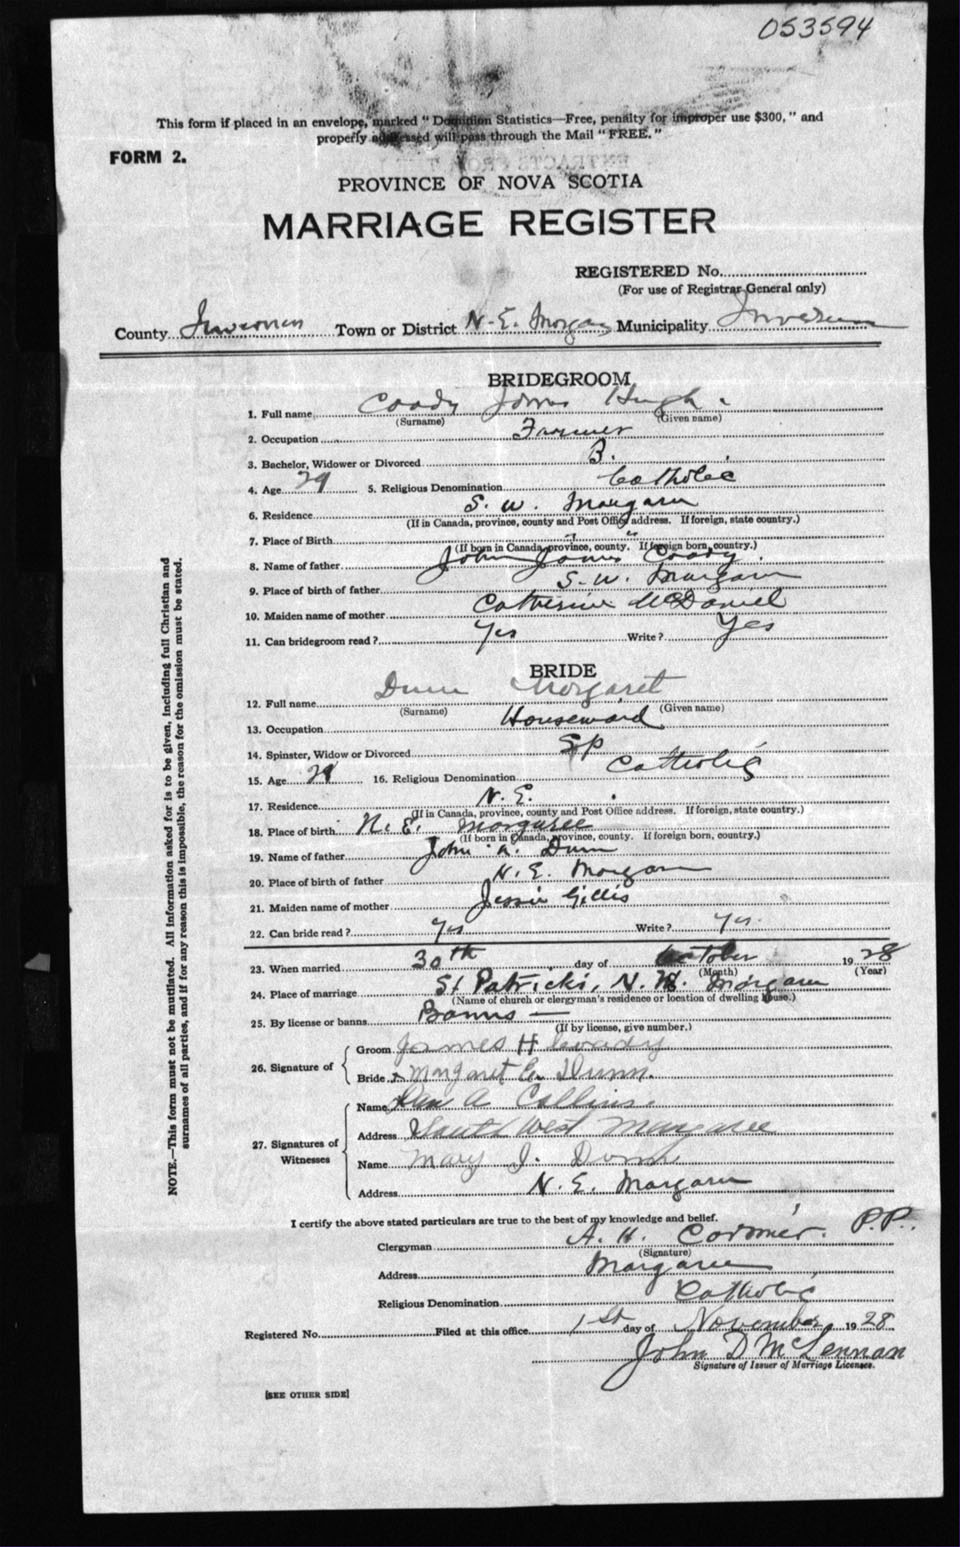 053594
This form if placed in an envelope, marked "Dominion Statistics—Free, penalty for improper use $300," and
properly addressed will pass through the Mail "FREE."
FORM 2.
PROVINCE OF NOVA SCOTIA
MARRIAGE REGISTER
REGISTERED No.
(For use of Registrar General only)
County Inverness Town or District N. E. Margaree Municipality Inverness
BRIDEGROOM
1. Full name Coady James Hugh
(Surname) (Given name)
2. Occupation Farmer
3. Bachelor, Widower or Divorced B.
4. Age 29 5. Religious Denomination Catholic
6. Residence S. W. Margaree
(If in Canada, province, county and Post Office address. If foreign, state country.)
7. Place of Birth " "
(If born in Canada, province, county. If foreign born, country.)
8. Name of father John James Coady
9. Place of birth of father S. W. Margaree
10. Maiden name of mother Catherine McDaniel
11. Can bridegroom read? Yes Write? Yes
BRIDE
12. Full name Dunn Margaret
(Surname) (Given name)
13. Occupation Houseward
14. Spinster, Widow or Divorced Sp
15. Age 16. Religious Denomination Catholic
17. Residence N. E.
(If in Canada, province, county and Post Office address. If foreign, state country.)
18. Place of birth N. E. Margaree
(If born in Canada, province, county. If foreign born, country.)
19. Name of father John A. Dunn
20. Place of birth of father N. E. Margaree
21. Maiden name of mother Jessie Gillis
22. Can bride read? Yes Write? Yes
23. When married 30th day of October 1928
(Month) (Year)
24. Place of marriage St Patricks, N. E. Margaree
(Name of church or clergyman's residence or location of dwelling house.)
25. By license or banns Banns —
(If by license, give number.)
26. Signature of
Groom James H Coady
Bride Margaret E. Dunn.
27. Signatures of Witnesses
Name A. Collins.
Address South West Margaree
Name Mary J. Dunn
Address N. E. Margaree
I certify the above stated particulars are true to the best of my knowledge and belief.
Clergyman A. H. Cormier. P.P.
(Signature)
Address Margaree
Religious Denomination Catholic
Registered No. Filed at this office 1st day of November 1928
John D McLennan
Signature of Issuer of Marriage Licenses.
[SEE OTHER SIDE]
NOTE.—This form must not be mutilated. All information asked for is to be given, including full Christian and
surnames of all parties, and if for any reason this is impossible, the reason for the omission must be stated.